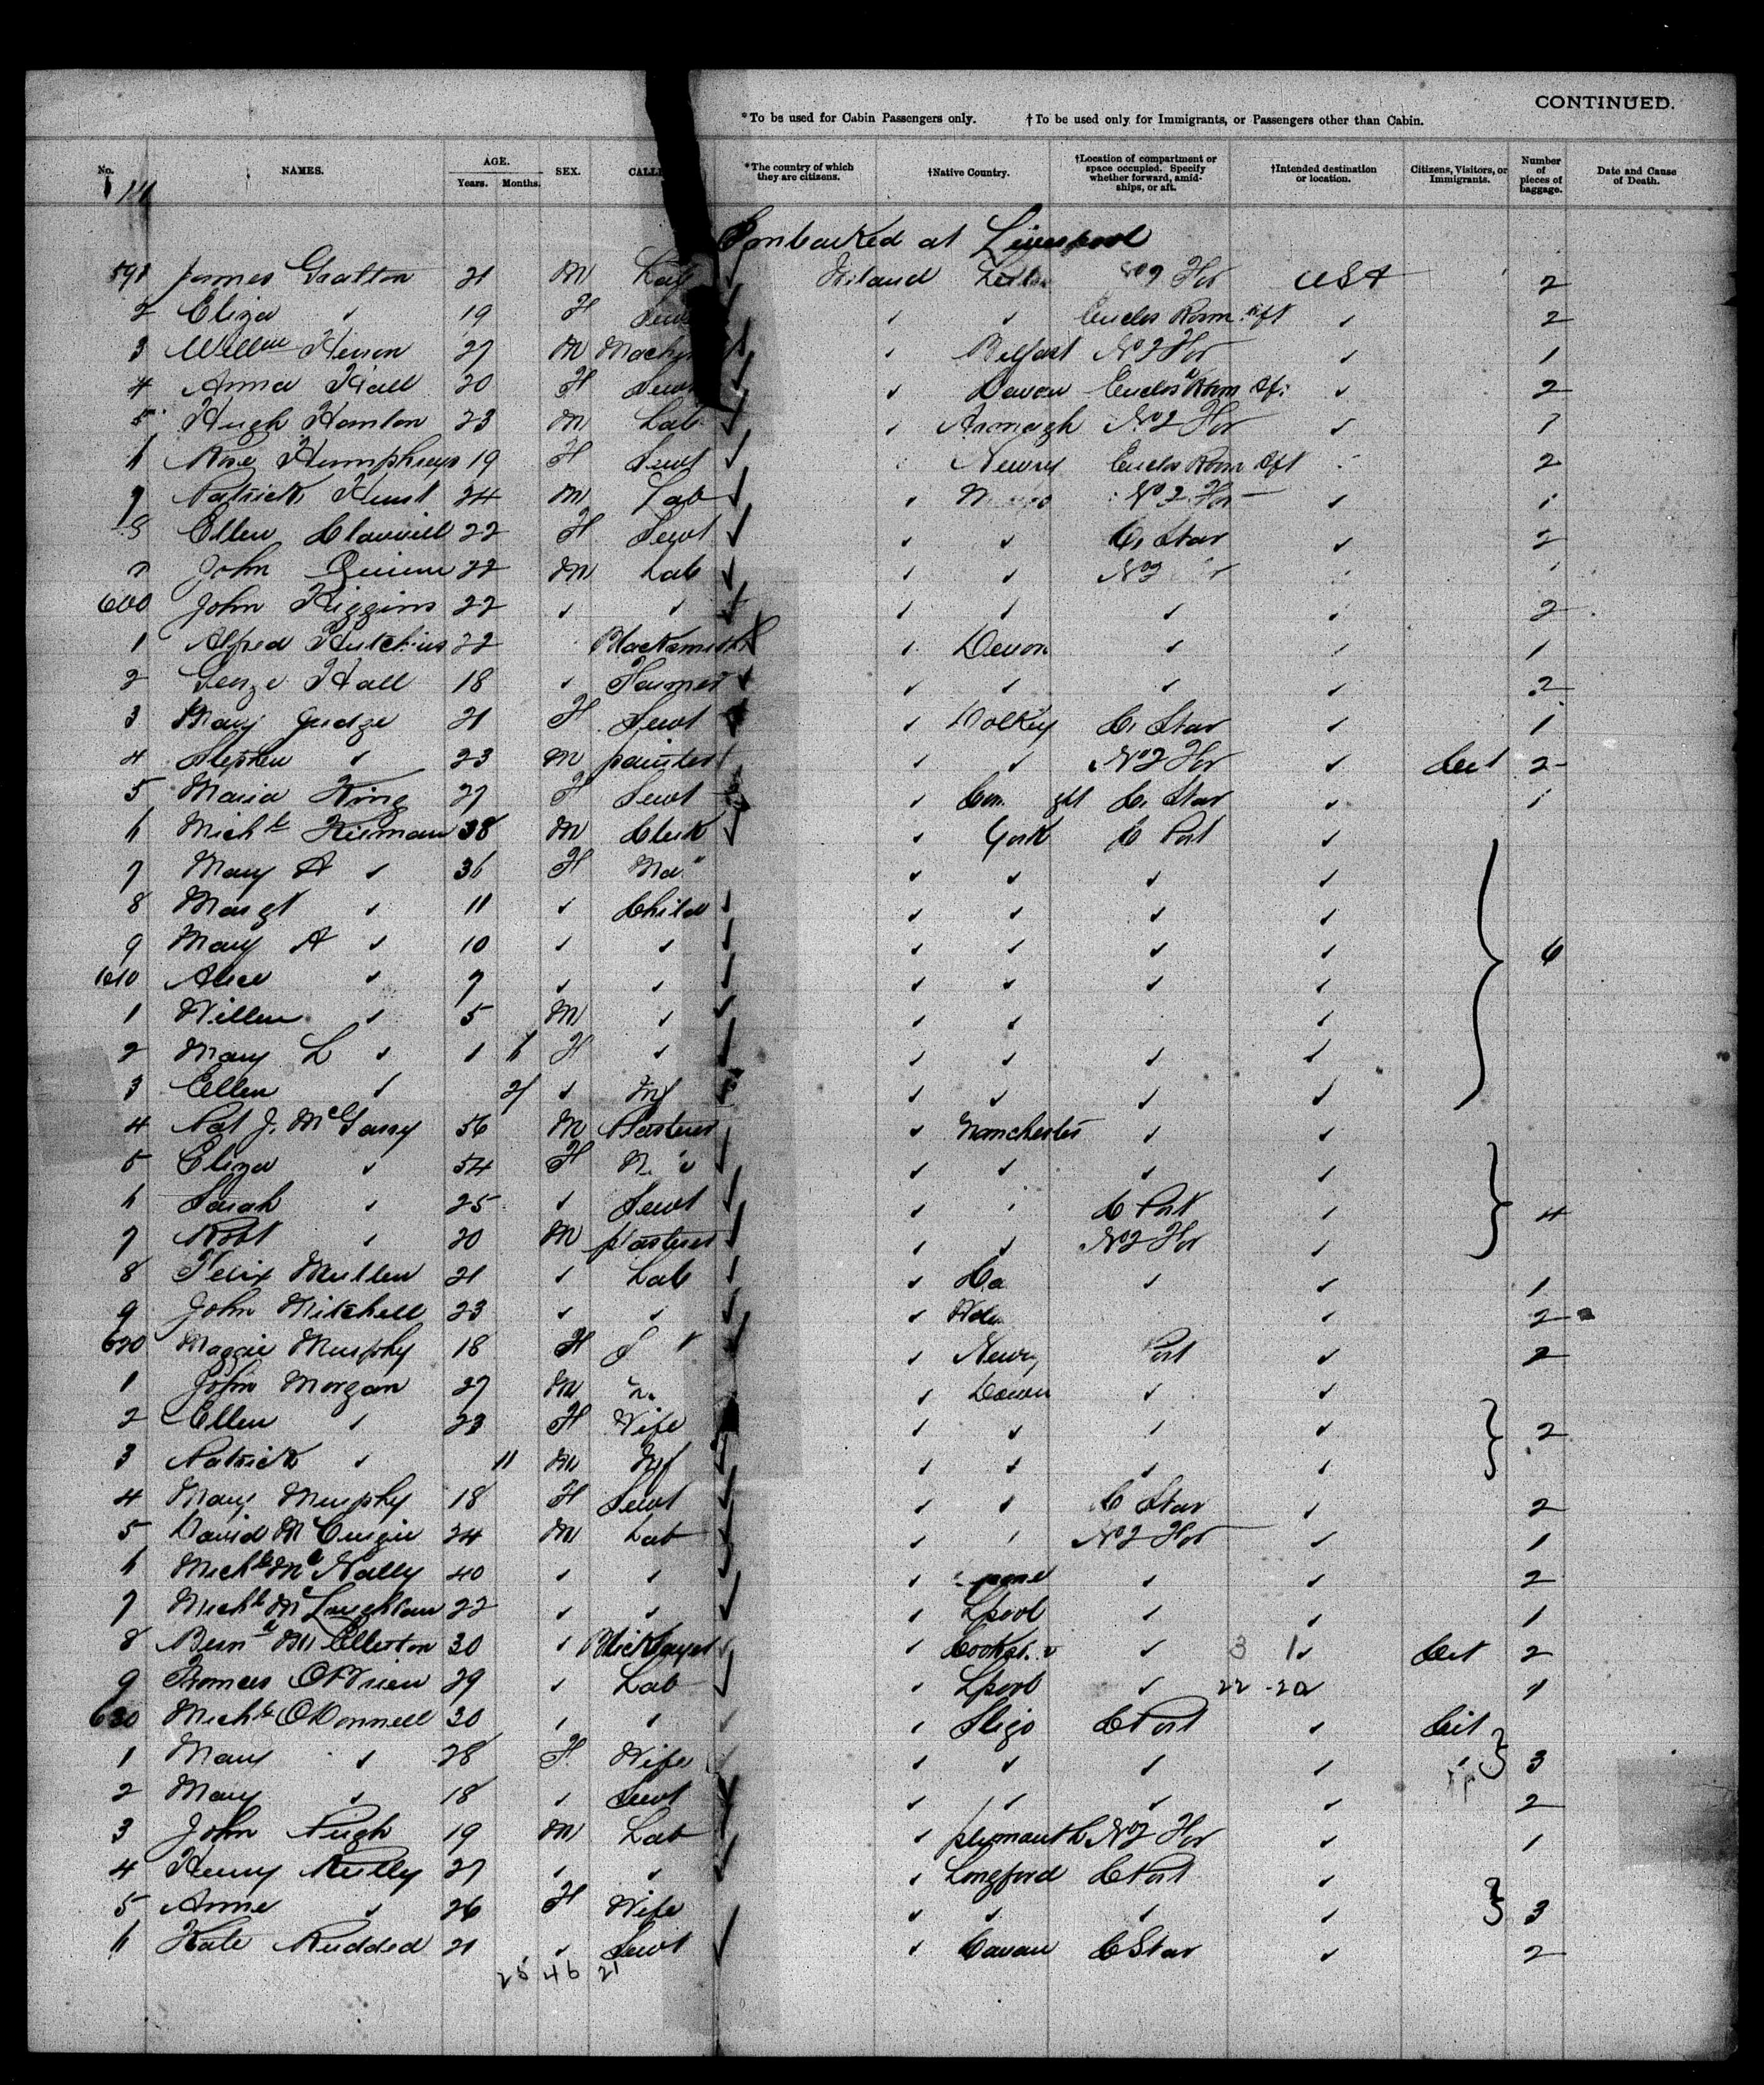 CONTINUED.
*To be used for Cabin Passengers only. †To be used only for Immigrants, or Passengers other than Cabin.
No. NAMES. AGE. Years. Months. SEX. CALLI *The country of which they are citizens. †Native Country. †Location of compartment or space occupied. Specify whether forward, amid-ships, or aft. †Intended destination or location. Citizens, Visitors, or Immigrants. Number of pieces of baggage. Date and Cause of Death.
Embarked at Liverpool
591 James Gratton 21 M Lab Ireland No 2 For USA 2
2 Eliza ✓ 19 F Servt ✓ ✓ Enclos Room Aft ✓ 2
3 Willm Heron 27 M Machin ✓ Belfast No 2 For ✓ 1
4 Anna Hall 20 F Servt ✓ Cavan Enclosd Room Aft ✓ 2
5 Hugh Hanlon 23 M Lab ✓ Armagh No 2 For ✓ 1
6 Rose Humphreys 19 F Servt ✓ Newry Enclos Room Aft ✓ 2
7 Patrick Hunt 24 M Lab ✓ No 2 For ✓ 1
8 Ellen 22 F Servt ✓ ✓ C. Star ✓ 2
9 John Quinn 22 M Lab ✓ ✓ No 2 ✓
600 John Higgins 22 ✓ ✓ ✓ ✓ ✓ ✓ 2
1 Alfred Hutchins 22 Blacksmith ✓ Devon ✓ ✓ 1
2 George Hall 18 ✓ Farmer ✓ ✓ ✓ ✓ 2
3 Mary Judge 21 F Servt ✓ Dolkey C. Star ✓ 1
4 Stephen ✓ 23 M painter ✓ ✓ No 2 For ✓ Cit 2
5 Maria King 27 F Servt ✓ C. Star ✓ 1
6 Michl Kiernan 38 M Clerk ✓ York C Port ✓
7 Mary A ✓ 36 F ✓ ✓ ✓ ✓
8 Margt ✓ 11 ✓ Child ✓ ✓ ✓ ✓
9 Mary A ✓ 10 ✓ ✓ ✓ ✓ ✓ ✓ 6
610 Alice ✓ 7 ✓ ✓ ✓ ✓ ✓ ✓
1 Willm ✓ 5 M ✓ ✓ ✓ ✓
2 Mary L ✓ 1 6 F ✓ ✓ ✓ ✓ ✓
3 Ellen ✓ 2 ✓ Inf ✓ ✓ ✓ ✓
4 Pat J. McGarry 56 M Plasterer ✓ Manchester ✓ ✓
5 Eliza ✓ 54 F ✓ ✓ ✓ ✓
6 Sarah ✓ 25 ✓ Servt ✓ ✓ C Port ✓ 4
7 Robt ✓ 20 M plasterer ✓ ✓ No 2 For ✓
8 Felix Mullen 21 ✓ Lab ✓ ✓ ✓ 1
9 John Mitchell 23 ✓ ✓ ✓ ✓ 2
620 Maggie Murphy 18 F ✓ Newry Port ✓ 2
1 John Morgan 27 M ✓ Down ✓ ✓
2 Ellen ✓ 23 F Wife ✓ ✓ ✓ ✓ 2
3 Patrick ✓ 11 M Inf ✓ ✓ ✓ ✓
4 Mary Murphy 18 F Servt ✓ ✓ C Star ✓ 2
5 David 24 M Lab ✓ ✓ No 2 For ✓ 1
6 Michl McNally 40 ✓ ✓ ✓ ✓ ✓ 2
7 Michl McLaughlan 22 ✓ ✓ ✓ Lpool ✓ ✓ 1
8 30 ✓ Bricklayer ✓ ✓ 3 1 ✓ Cit 2
9 Thomas O'Brien 29 ✓ Lab ✓ Lpool ✓ 22 -20 ✓ 1
630 Michl O'Donnell 30 ✓ ✓ ✓ Sligo C Port ✓ Cit
1 Mary ✓ 28 F. Wife ✓ ✓ ✓ ✓ ✓ 3
2 Mary ✓ 18 ✓ Servt ✓ ✓ ✓ ✓ 2
3 John Pugh 19 M Lab ✓ plymouth No 2 For ✓ 1
4 Henry Reilly 27 ✓ ✓ ✓ Longford C Port ✓
5 Anne ✓ 26 F Wife ✓ ✓ ✓ ✓ 3
6 Kate Rudded 21 ✓ Servt ✓ Cavan C Star ✓ 2
25 46 21